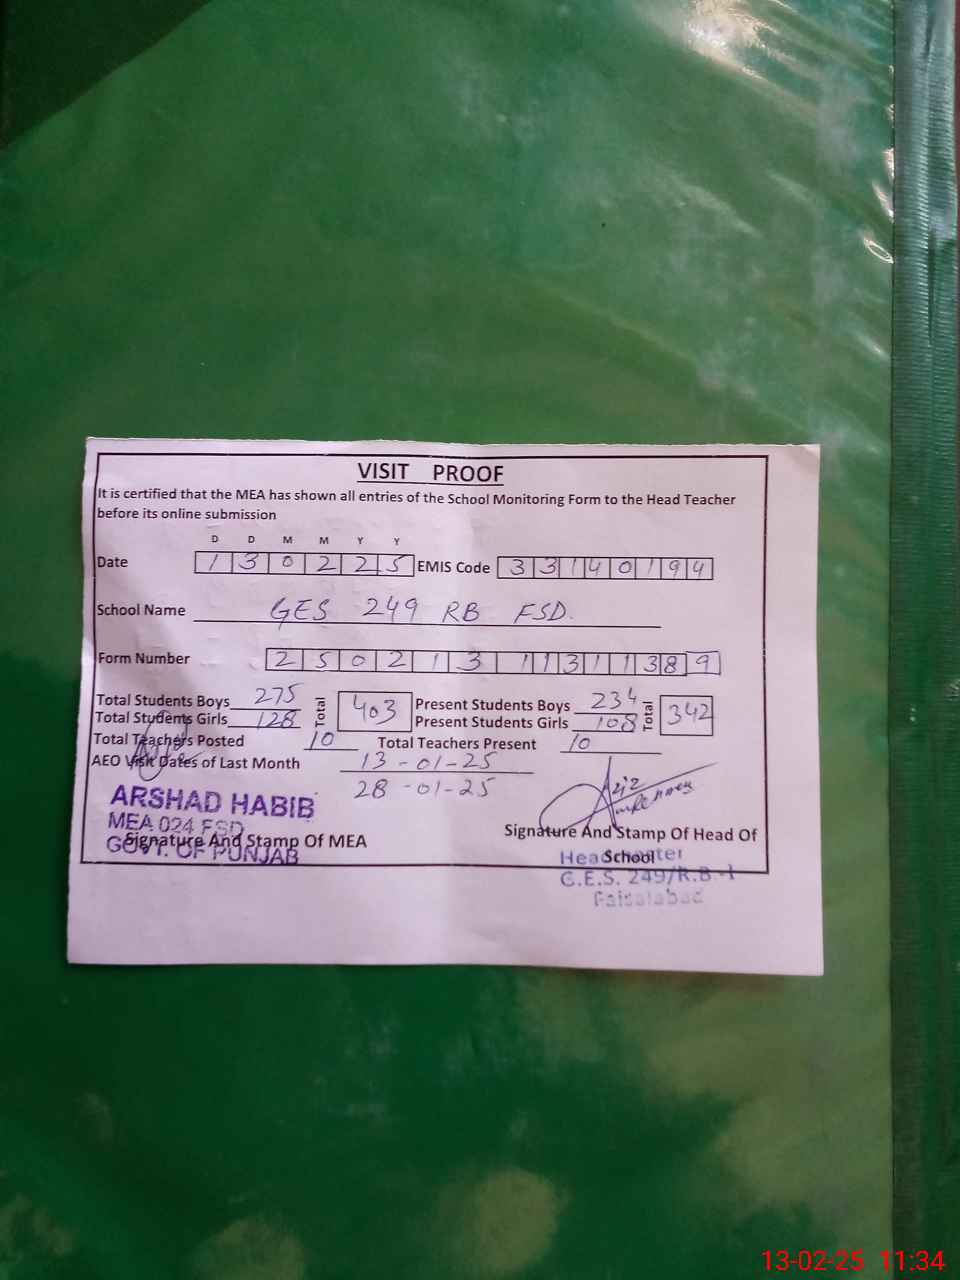 VISIT PROOF
It is certified that the MEA has shown all entries of the School Monitoring Form to the Head Teacher
before its online submission
D D M M Y Y
Date 1 3 0 2 2 5 EMIS Code 3 3 1 4 0 1 9 4
School Name GES 249 RB FSD.
Form Number 2 5 0 2 1 3 1 1 3 1 1 3 8 9
Total Students Boys 275 Total 403 Present Students Boys 234 Total 342
Total Students Girls 128 Present Students Girls 108
Total Teachers Posted 10 Total Teachers Present 10
AEO Visit Dates of Last Month 13-01-25
28-01-25
ARSHAD HABIB
MEA 024 FSD
GOVT. OF PUNJAB
Signature And Stamp Of MEA
Signature And Stamp Of Head Of
School
G.E.S. 249/R.B-I
Faisalabad
13-02-25 11:34